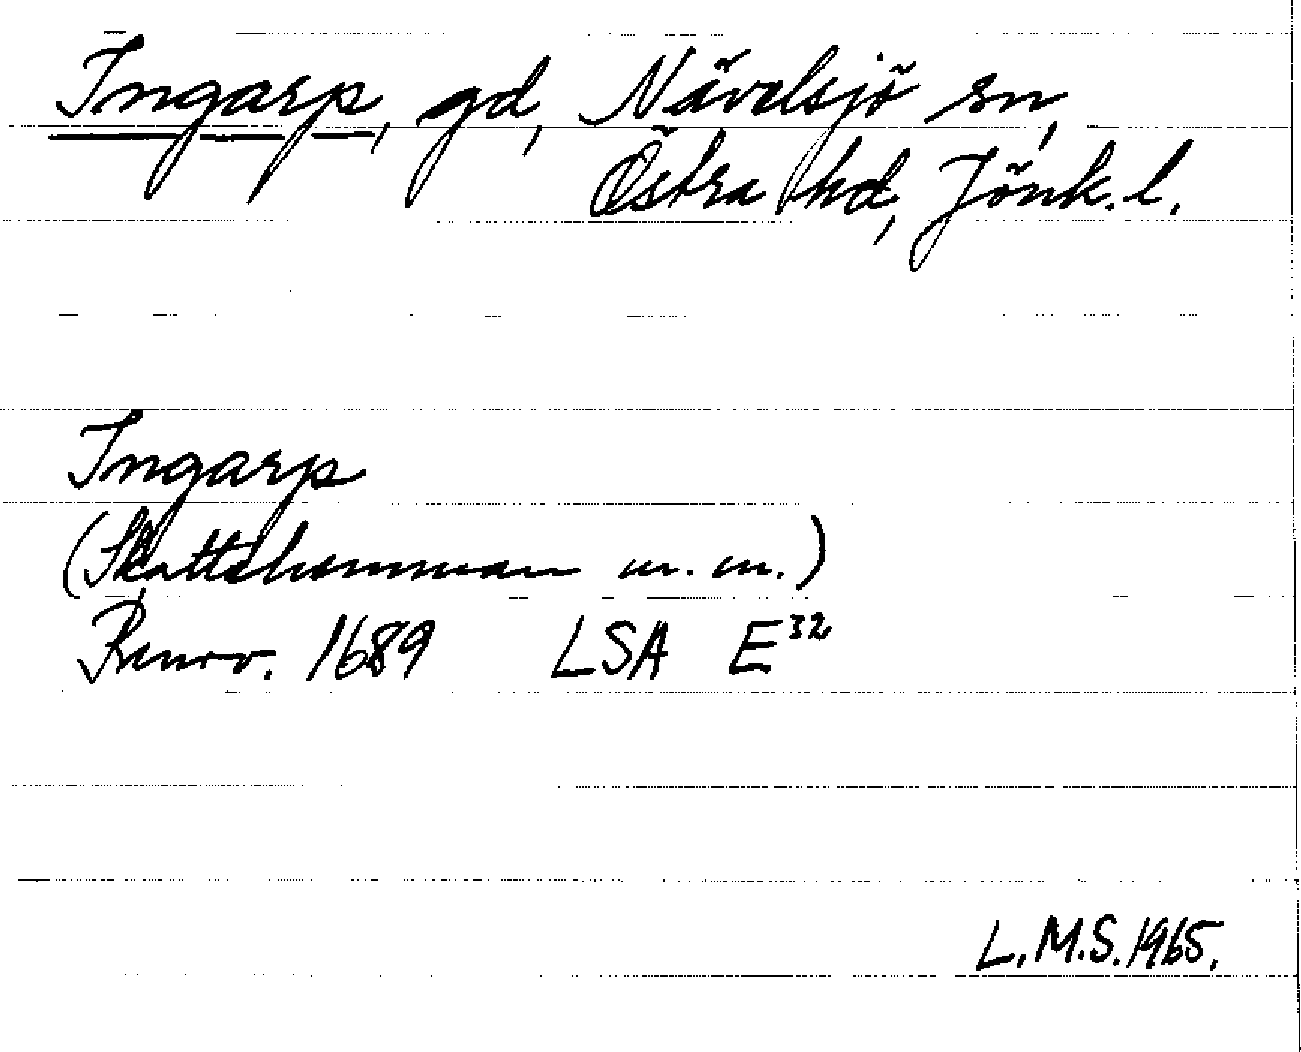 Ingarp, gd, Nävelsjö sn,
Östra hd, Jönk. l.
Ingarp
(Skattehemman m. m.)
Renov. 1689 LSA E³²
L.M.S. 1965.